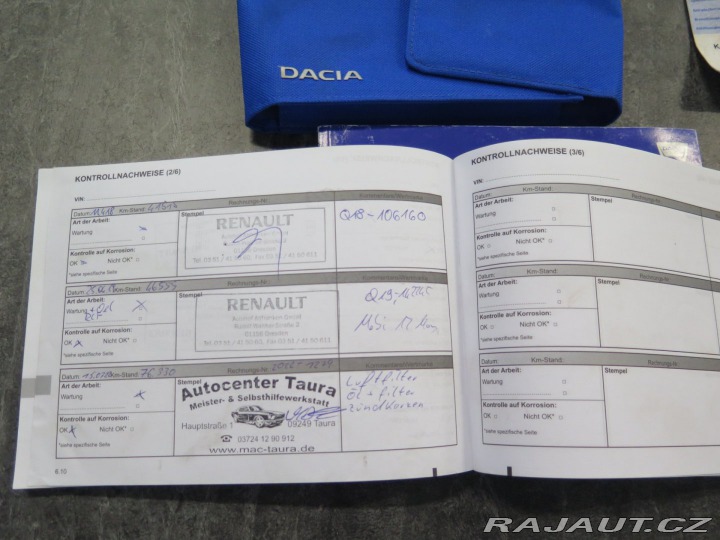 DACIA
KONTROLLNACHWEISE (2/6)
VIN:
Datum: Km-Stand: 41514
Rechnungs-Nr.
Kommentare/Wartung
Art der Arbeit:
Wartung
Kontrolle auf Korrosion:
OK Nicht OK*
*siehe spezifische Seite
Stempel
RENAULT
Q18-106160
Datum: Km-Stand: 66555
Rechnungs-Nr.
Kommentare/Wartung
Art der Arbeit:
Wartung
Kontrolle auf Korrosion:
OK Nicht OK*
*siehe spezifische Seite
Stempel
RENAULT
Datum: Km-Stand: 76 930
Rechnungs-Nr.
Kommentare/Wartung
Art der Arbeit:
Wartung
Kontrolle auf Korrosion:
OK Nicht OK*
*siehe spezifische Seite
Stempel
Autocenter Taura
Meister- & Selbsthilfewerkstatt
Hauptstraße 1 09249 Taura
☎ 03724 12 90 912
www.mac-taura.de
Luftfilter
öl + filter
zündkerzen
6.10
KONTROLLNACHWEISE (3/6)
VIN:
Datum: Km-Stand:
Rechnungs-Nr.
Art der Arbeit:
Wartung
Kontrolle auf Korrosion:
OK Nicht OK*
*siehe spezifische Seite
Stempel
Datum: Km-Stand:
Rechnungs-Nr.
Art der Arbeit:
Wartung
Kontrolle auf Korrosion:
OK Nicht OK*
*siehe spezifische Seite
Stempel
Datum: Km-Stand:
Rechnungs-Nr.
Art der Arbeit:
Wartung
Kontrolle auf Korrosion:
OK Nicht OK*
*siehe spezifische Seite
Stempel
RAJAUT.CZ